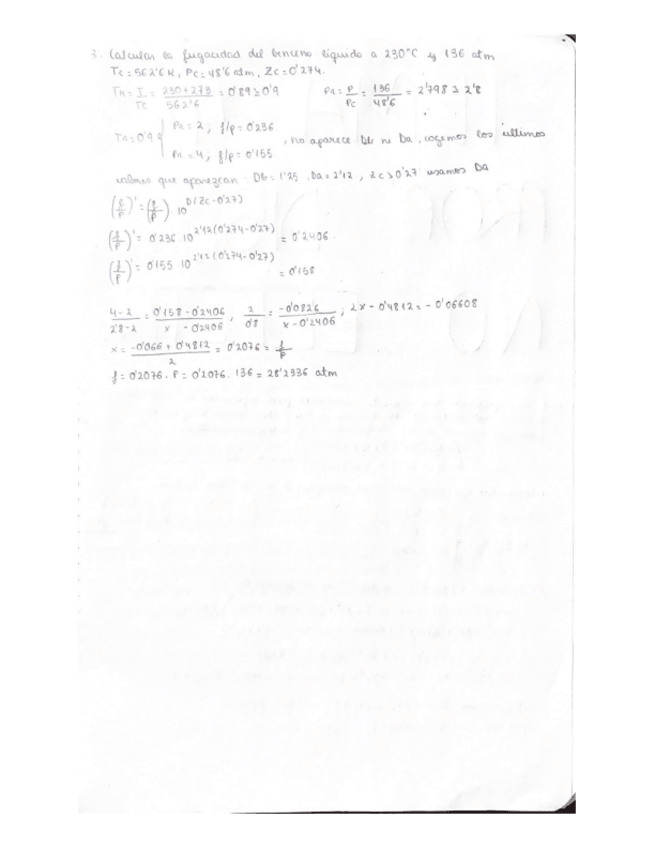 3. Calcular la fugacidad del benceno líquido a 230°C y 136 atm
Tc = 562'6 K, Pc = 48'6 atm, Zc = 0'274.
TR = T/Tc = (230+273)/562'6 = 0'89 ≃ 0'9 PR = P/Pc = 136/48'6 = 2'798 ≃ 2'8
TR = 0'9 { PR = 2, f/p = 0'236
PR = 4, f/p = 0'155
, no aparece Db ni Da, cogemos los últimos
valores que aparezcan: Db = 1'25, Da = 2'12, Zc > 0'27 usamos Da
(f/p)' = (f/p) · 10^D(Zc - 0'27)
(f/p)' = 0'236 · 10^2'12(0'274 - 0'27) = 0'2406
(f/p)' = 0'155 · 10^2'12(0'274 - 0'27) = 0'158
(4-2)/(2'8-2) = (0'158 - 0'2406)/(x - 0'2406), 2/0'8 = -0'0826/(x - 0'2406); 2x - 0'4812 = -0'06608
x = (-0'066 + 0'4812)/2 = 0'2076 = f/p
f = 0'2076 · P = 0'2076 · 136 = 28'2336 atm